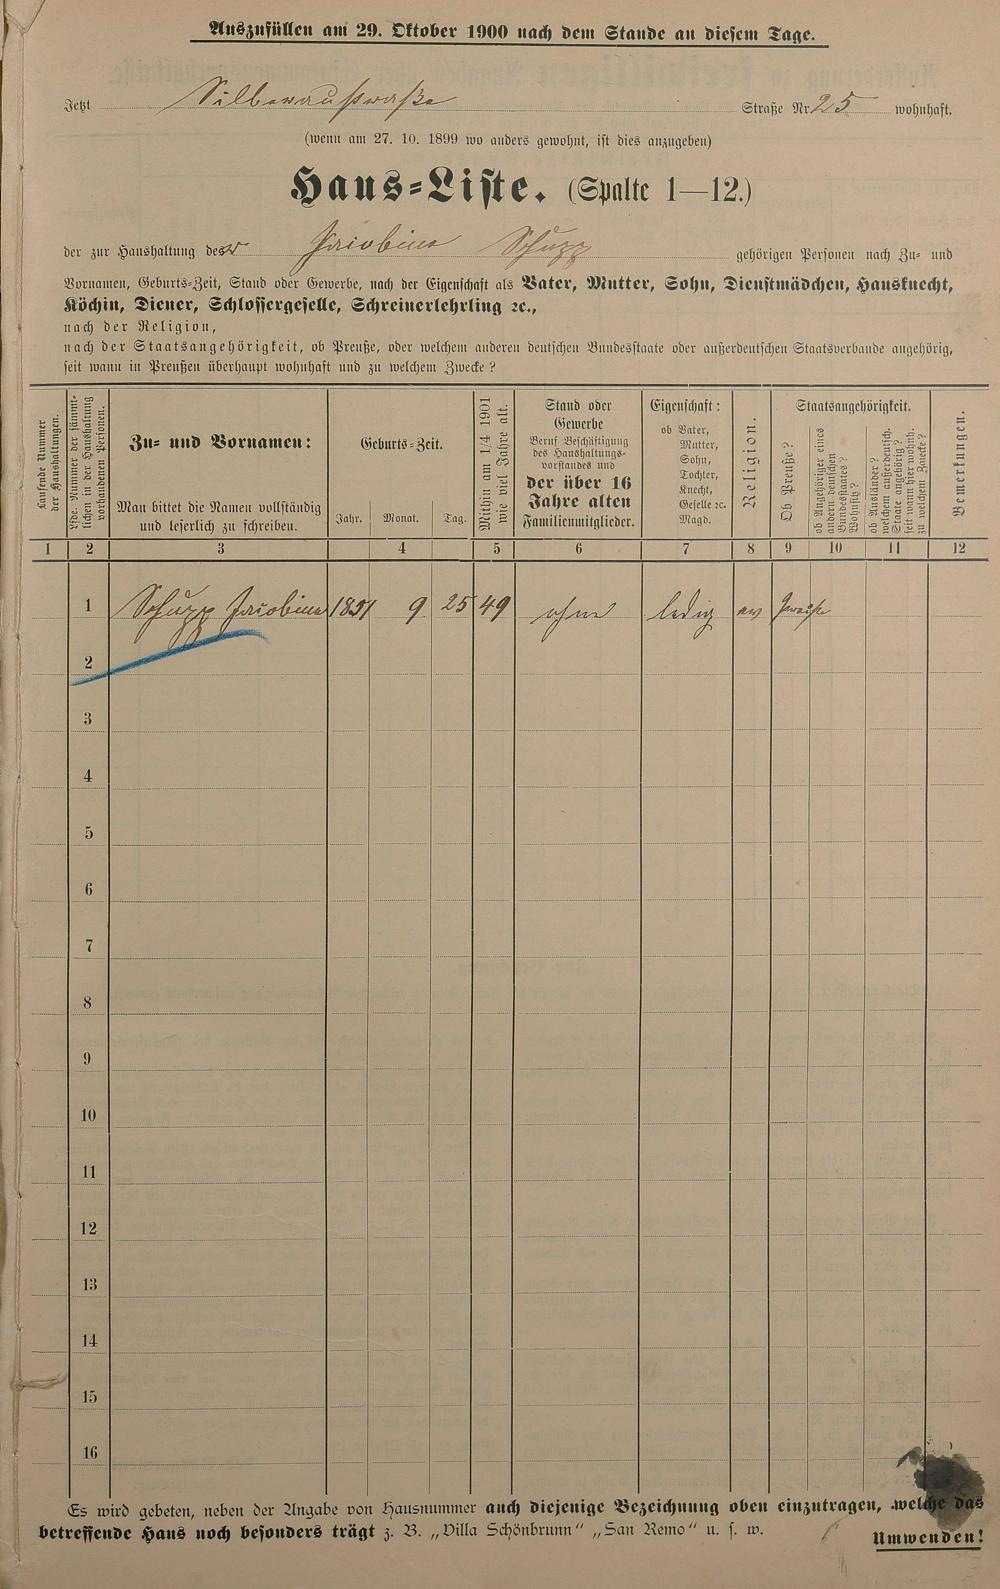 Auszufüllen am 29. Oktober 1900 nach dem Stande an diesem Tage.
Jetzt Silberaustraße Straße Nr. 25 wohnhaft.
(wenn am 27. 10. 1899 wo anders gewohnt, ist dies anzugeben)
Haus=Liste. (Spalte 1—12.)
der zur Haushaltung der Jacobine Schupp gehörigen Personen nach Zu= und
Vornamen, Geburts=Zeit, Stand oder Gewerbe, nach der Eigenschaft als Vater, Mutter, Sohn, Dienstmädchen, Hausknecht,
Köchin, Diener, Schlossergeselle, Schreinerlehrling ꝛc.,
nach der Religion,
nach der Staatsangehörigkeit, ob Preuße, oder welchem anderen deutschen Bundesstaate oder außerdeutschen Staatsverbande angehörig,
seit wann in Preußen überhaupt wohnhaft und zu welchem Zwecke?
Laufende Nummer
der Haushaltungen.
Lfde. Nummer der sämmt=
lichen in der Haushaltung
vorhandenen Personen.
Zu= und Vornamen:
Man bittet die Namen vollständig
und leserlich zu schreiben.
Geburts=Zeit.
Jahr. Monat. Tag.
Mithin am 1/4 1901
wie viel Jahre alt.
Stand oder
Gewerbe
Beruf Beschäftigung
des Haushaltungs=
vorstandes und
der über 16
Jahre alten
Familienmitglieder.
Eigenschaft:
ob Vater,
Mutter,
Sohn,
Tochter,
Knecht,
Geselle ꝛc.
Magd.
Religion.
Staatsangehörigkeit.
Ob Preuße?
ob Angehöriger eines
andern deutschen
Bundesstaates?
Wohnsitz?
ob Ausländer?
welchem außerdeutsch.
Staate angehörig?
seit wann hier wohnh.
zu welchem Zwecke?
Bemerkungen.
1 2 3 4 5 6 7 8 9 10 11 12
1 Schupp Jacobine 1851 9 25 49 ohne ledig ev Preuße
2
3
4
5
6
7
8
9
10
11
12
13
14
15
16
Es wird gebeten, neben der Angabe von Hausnummer auch diejenige Bezeichnung oben einzutragen, welche das
betreffende Haus noch besonders trägt z. B. „Villa Schönbrunn“ „San Remo“ u. s. w.
Umwenden!